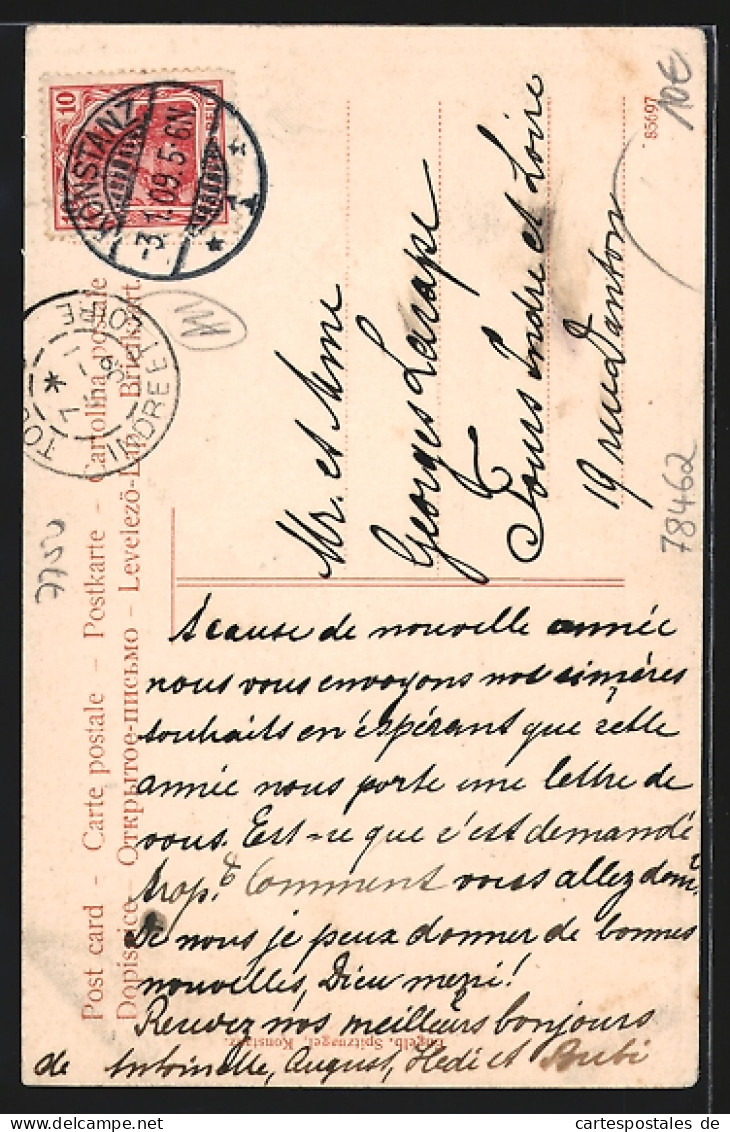 10
KONSTANZ
-3.1.09.5-6N
* 1 *
INDRE ET LOIRE
7 - 1
09
Post card – Carte postale – Postkarte – Cartolina postale
Dopisnice – Открытое-письмо – Levelezö-Lap – Briefkaart.
85697
10€
78462
7750
Mr. et Mme
Georges Larape
Tours Indre et Loire
19 rue Danton
A cause de nouvelle année
nous vous envoyons nos simères
souhaits en éspérant que cette
année nous porte une lettre de
vous. Est-ce que c'est demandé
trop? Comment vous allez donc?
De nous je peux donner de bonnes
nouvelles, Dieu merçi!
Recevez nos meilleurs bonjours
de Antoinette, August, Hedi et Bubi
Engelb. Spitznagel, Konstanz.
cartespostales.de